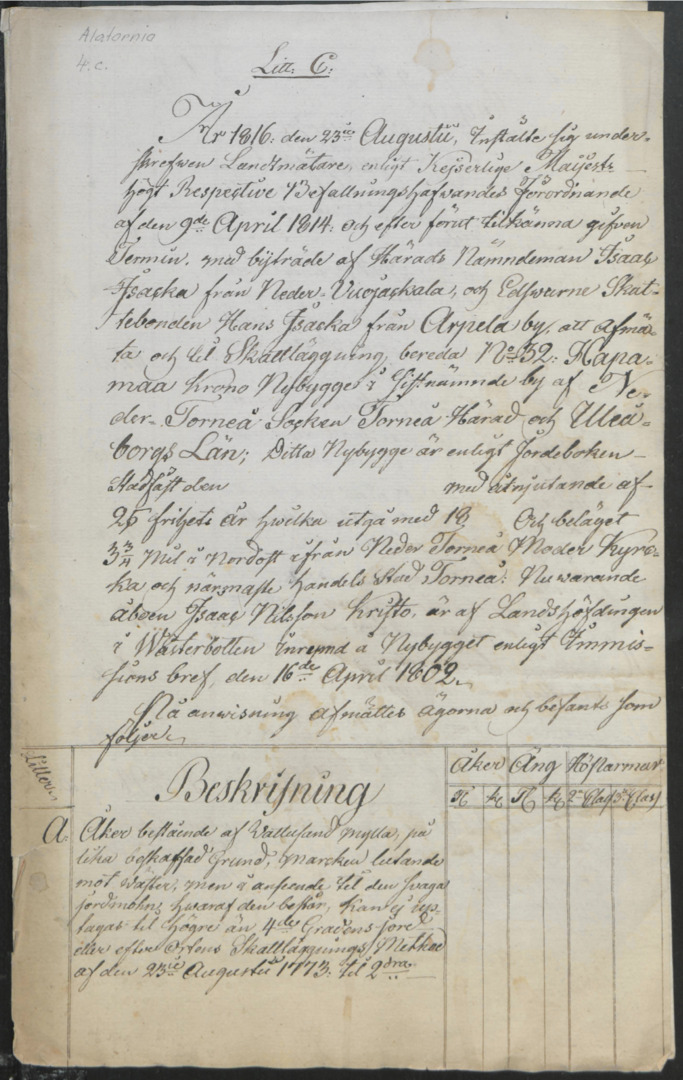 Alatornio
4.c.
Litt: C:
År 1816: den 23die Augustii, Instälte sig under-
skrefwen Landtmätare, enligt Kejserlige Maijests
högt Respective Befallningshafwandes Förordnande
af den 9de April 1814: och efter förut tilkänna gifven
Termin, med biträde af Härads Nämndeman Isaac
Isacka från Neder-Vuojackala, och Edswurne Skat-
tebonden Hans Isacka från Arpela by, att afmä-
ta och til Skattläggning bereda No 32: Kapa-
maa Krono Nybygge i sistnämnde by af Ne-
der-Torneå Socken Torneå Härad och Uleå-
borgs Län; Ditto Nybygge är enligt Jordeboken
Stadfäst den med åtnjutande af
25 frihets år hwilka utgå med 18 Och beläget
3 3/4 Mil i Nordost ifrån Neder Torneå Moder Kyrc-
ka och närmaste handels Stad Torneå: Nuwarande
åboen Isaac Nilsson Kristo, är af Landshöfdingen
i Wästerbotten Inrymd å Nybygget enligt Immis-
sions bref, den 16de April 1802.
På anwisning afmättes ägorna och befants som
följer
Litterer
Beskrifning
Åker Äng Höstarmar
2n Clas 3e Clas
A. Åker bestående af Wattusand mylla, på
lika beskaffad Grund, marcken lutande
mot wäster, men i anseende til den swaga
jordmohn, hwaraf den består, kan ej up-
tagas til högre än 4de Gradens jord
eller efter Ortens Skattläggnings Methode
af den 23die Augustii 1773: til 2dra